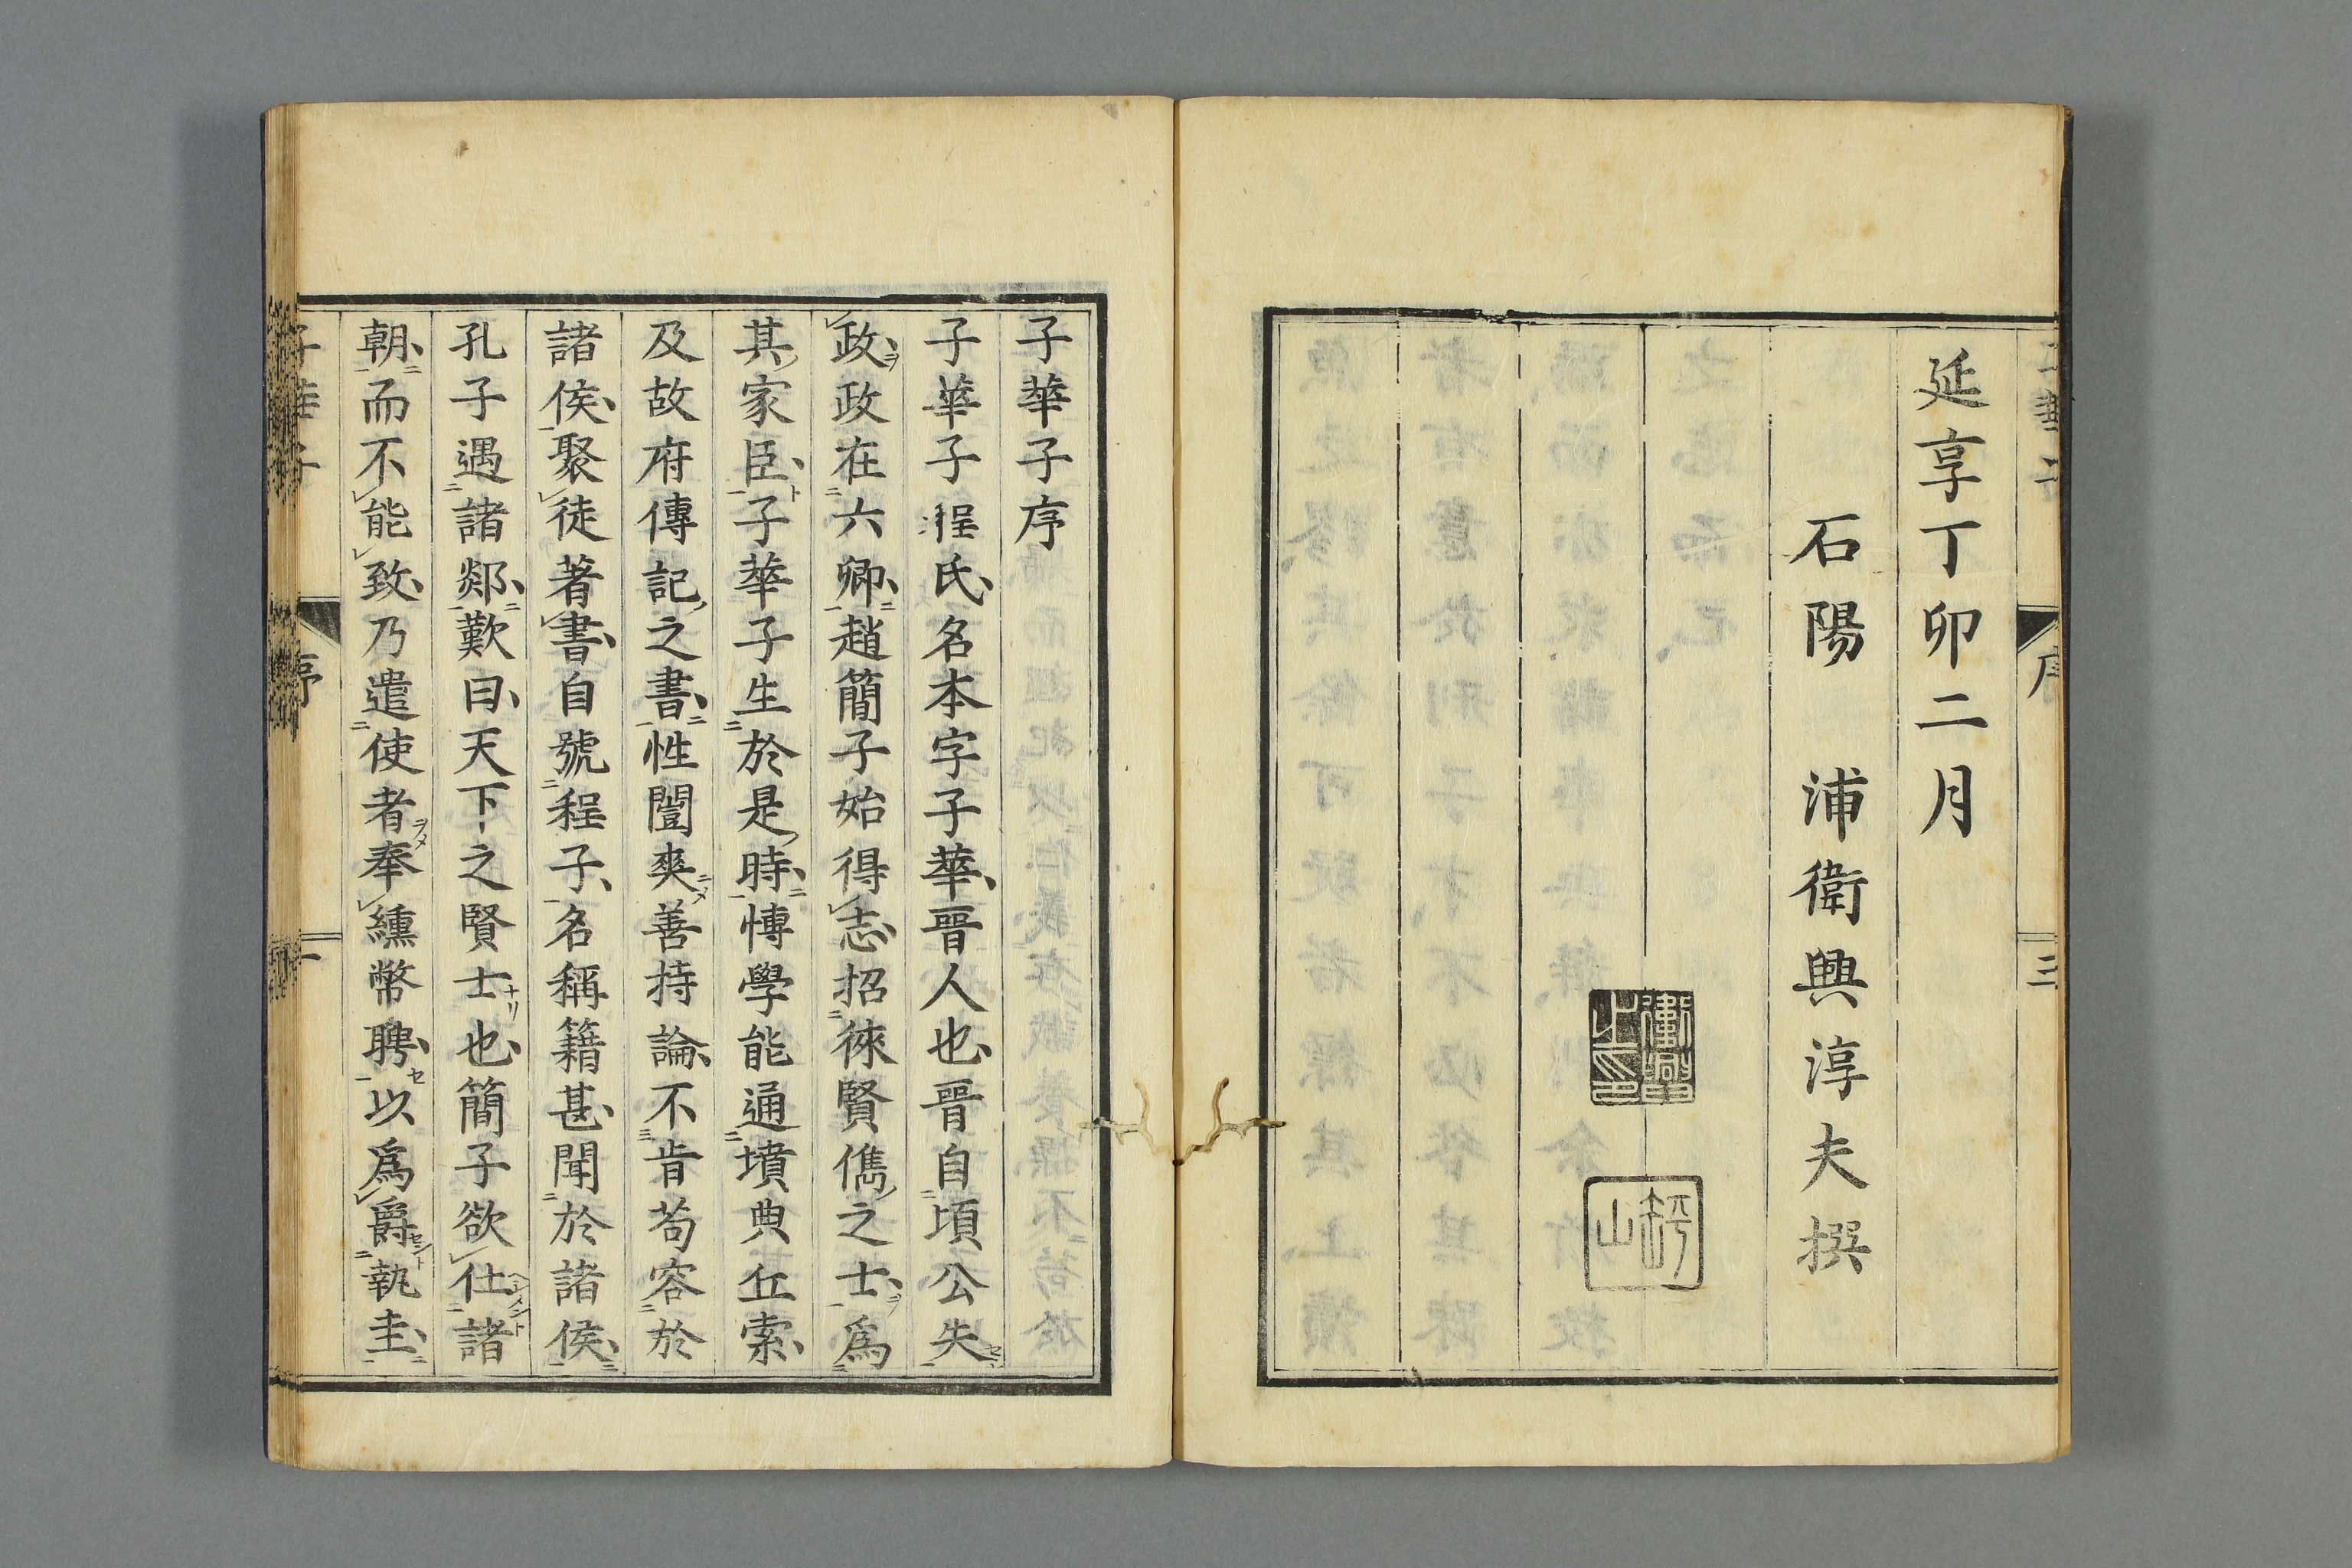 延享丁卯二月
石陽 浦衛興淳夫撰
序
三
子華子序
子華子程氏名本字子華晉人也晉自頃公失
政政在六卿趙簡子始得志招徠賢儁之士爲
其家臣子華子生於是時慱學能通墳典丘索
及故府傳記之書性闓爽善持論不肯苟容於
諸侯聚徒著書自號程子名稱籍甚聞於諸侯
孔子遇諸郯歎曰天下之賢士也簡子欲仕諸
朝而不能致乃遣使者奉纁幣聘以爲爵執圭
子華子
序